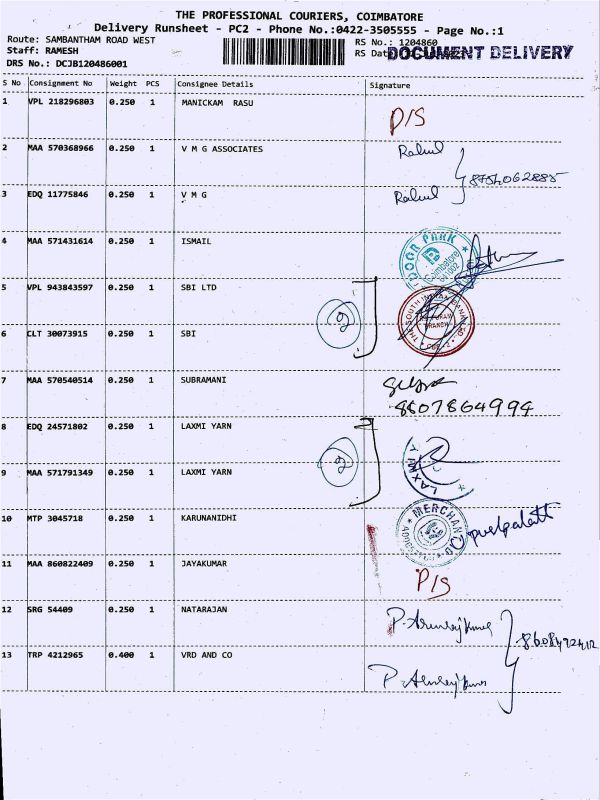 THE PROFESSIONAL COURIERS, COIMBATORE
Delivery Runsheet - PC2 - Phone No.:0422-3505555 - Page No.:1
Route: SAMBANTHAM ROAD WEST
RS No.: 1204860
Staff: RAMESH
RS Dat
DOCUMENT DELIVERY
DRS No.: DCJB120486001
S No Consignment No Weight PCS Consignee Details Signature
1 VPL 218296803 0.250 1 MANICKAM RASU
P/S
2 MAA 570368966 0.250 1 V M G ASSOCIATES Rahul
8754062885
3 EDQ 11775846 0.250 1 V M G Rahul
4 MAA 571431614 0.250 1 ISMAIL
DOOR PARK
Coimbatore
641002
5 VPL 943843597 0.250 1 SBI LTD
2
THE SOUTH INDIAN BANK
BRANCH
6 CLT 30073915 0.250 1 SBI
7 MAA 570540514 0.250 1 SUBRAMANI
8807864994
8 EDQ 24571802 0.250 1 LAXMI YARN
2
LAXM
9 MAA 571791349 0.250 1 LAXMI YARN
10 MTP 3045718 0.250 1 KARUNANIDHI
MERCHAN
11 MAA 860822409 0.250 1 JAYAKUMAR
P/S
12 SRG 54409 0.250 1 NATARAJAN
13 TRP 4212965 0.400 1 VRD AND CO